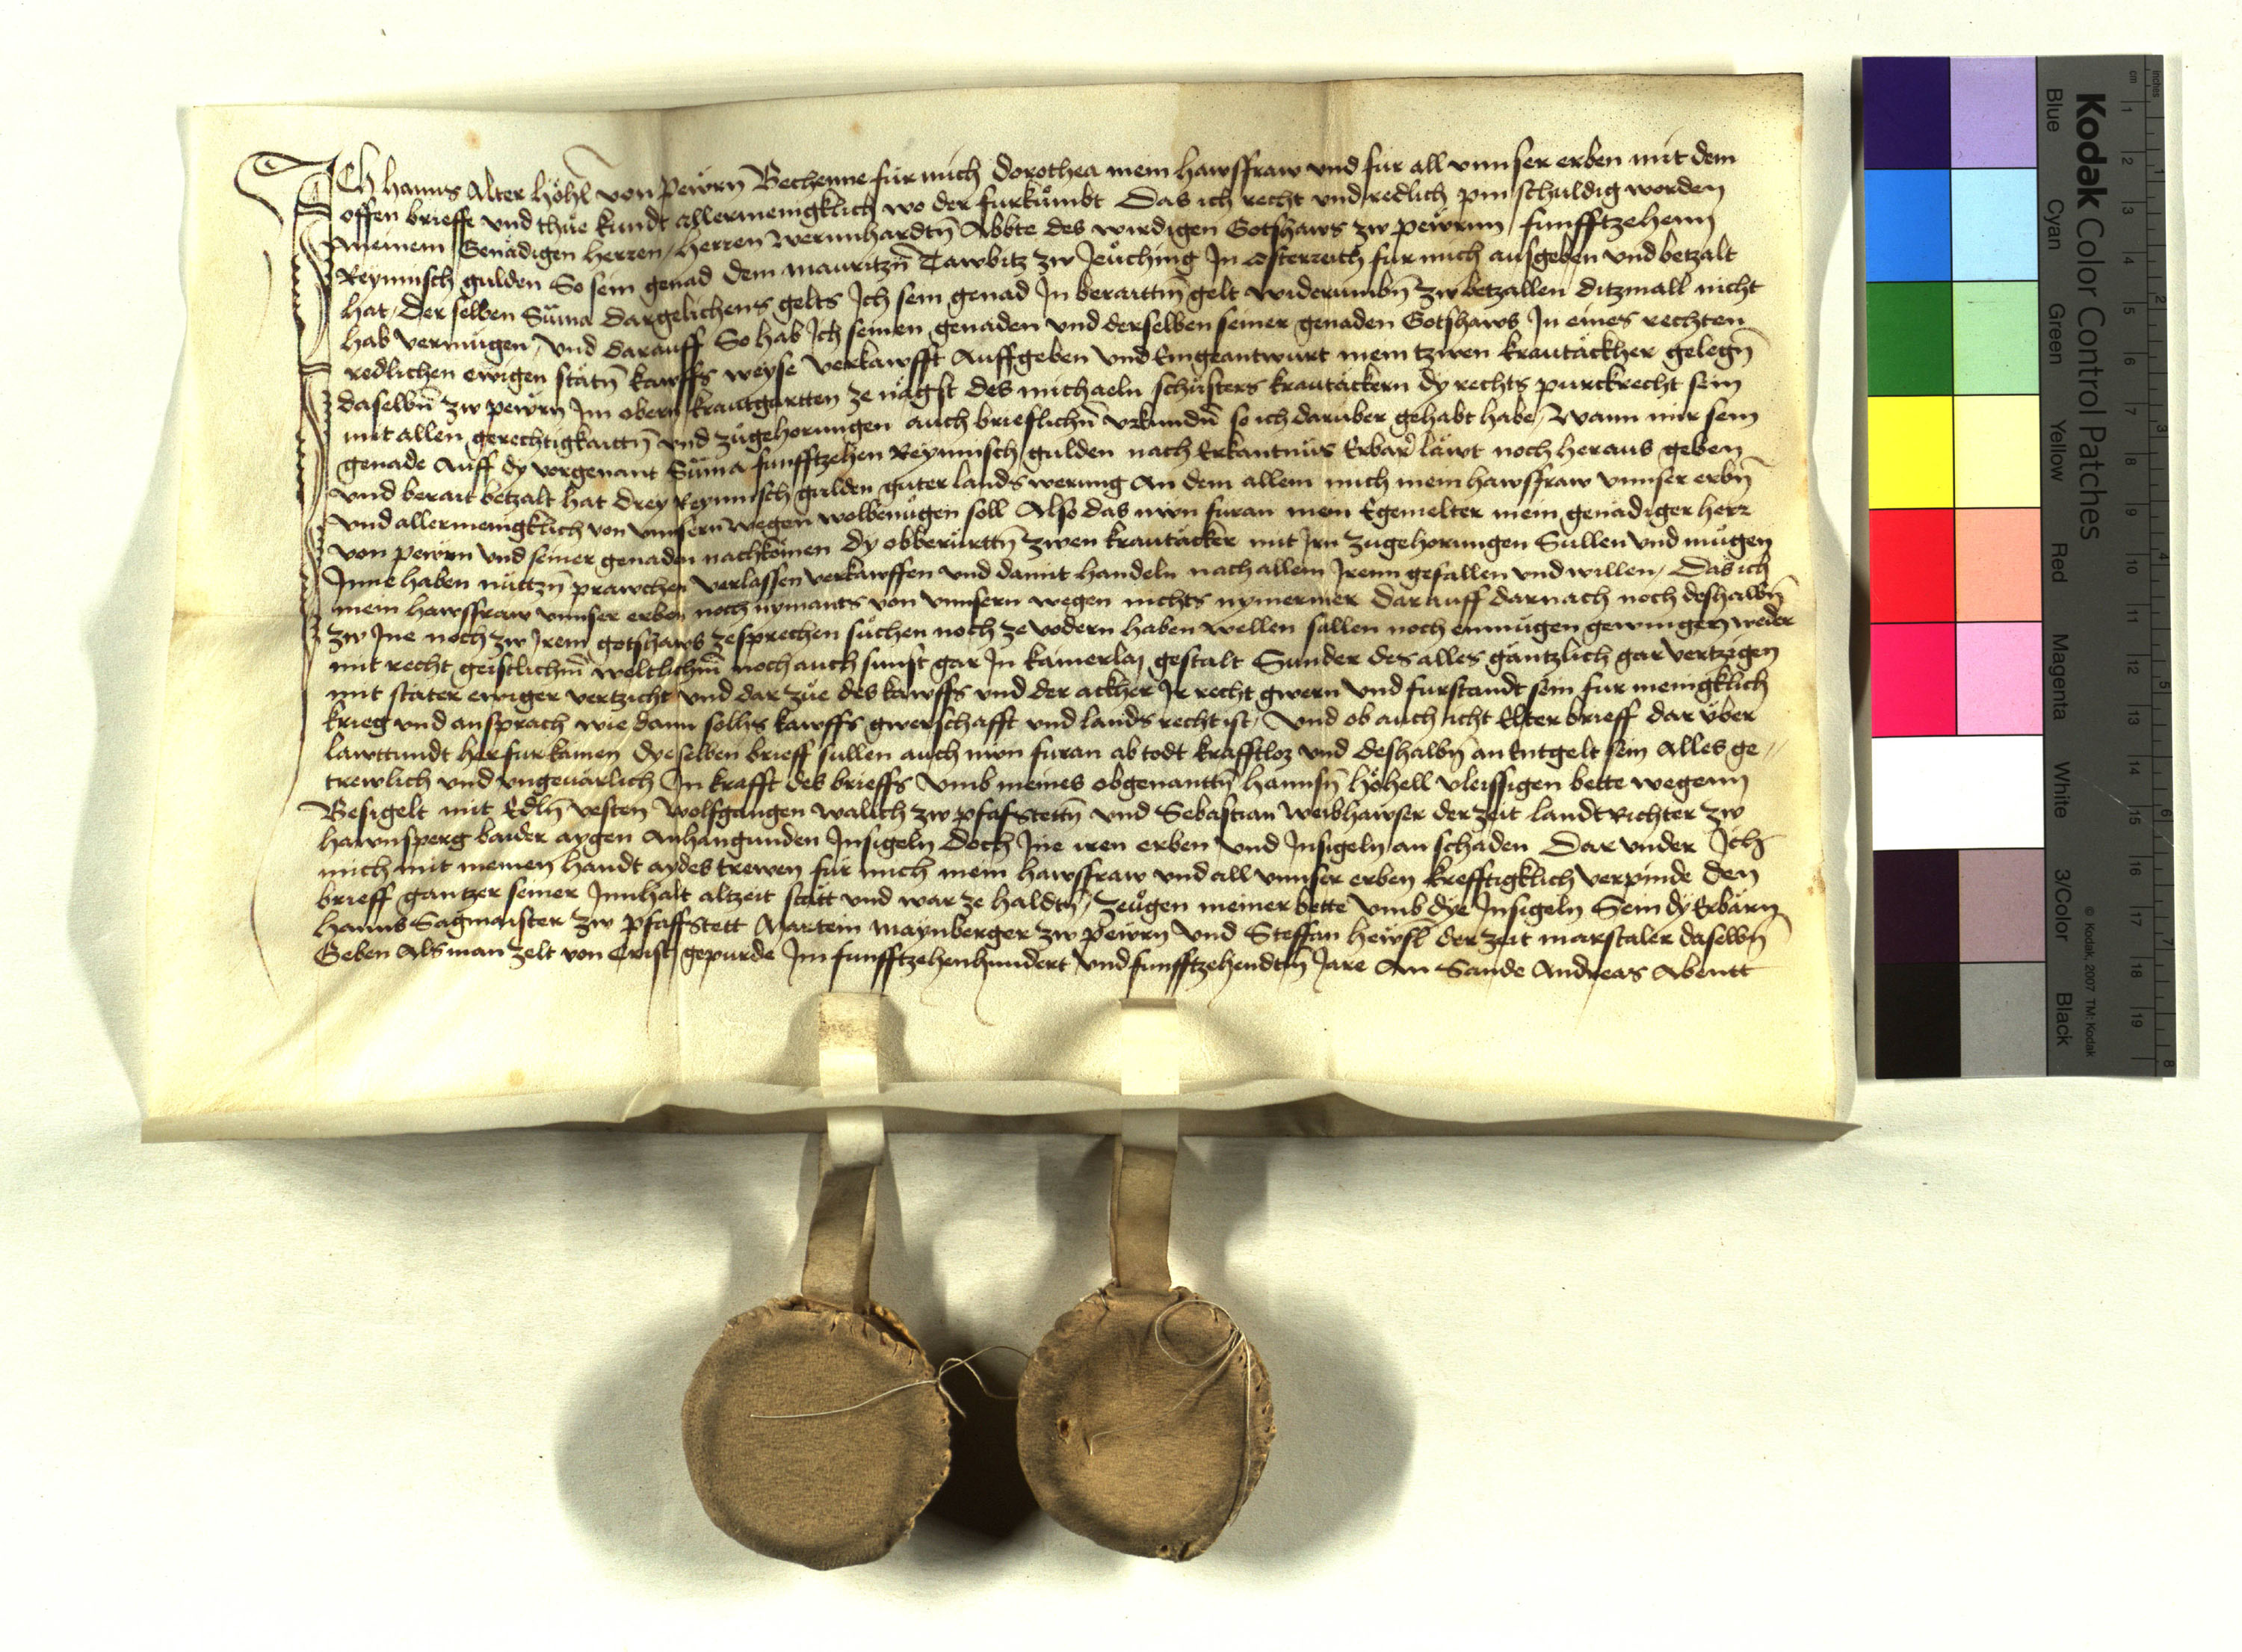 Ich Hanns Alter Höhl von Pewrn Bechenne für mich Dorothea mein hawsffraw vnd für all vnnser erben mit dem
offen brieffe vnd thue kundt allermenigklich wo der furkůmbt Das ich recht vnd redlich pin schuldig worden
meinem Genädigen herren, herren Wernnhardtn̄ Abbte des wirdigen Gotshaws zw pewrnn, funfftzehenn
Reynnisch gulden So sein genad dem Mauritzn̄ Tawbitz zw Jeuching In Osterreich fur mich ausgeben vnd betzalt
hat, Der selben Sum̄a dargelichens gelts Ich sein genad In beraittm̄ gelt widerumbn̄ zw betzallen ditzmall nicht
hab vermůgen, vnd darauff So hab Ich seinen genaden vnd derselben seiner genaden Gotshaws In eines rechten
redlichen ewigen stätn̄ kawffs weyse verkawfft Auffgeben vnd Eingeantwurt mein tzwen krautäckher gelegn̄
daselbn̄ zw pewrn Im obern krautgartten ze nägst des michaeln schusters krautäckern dy rechts purckrecht sein
mit allen gerechtigkaittn̄ vnd zůgehorungen auch brieflichn̄ vrkundn̄ so ich darüber gehabt habe, Wann mir sein
genade Auff dy vorgenant Sum̄a funfftzehen Reynnisch gulden nach Erkantnůs Erbar läwt noch heraus geben
vnd berait betzalt hat drey Reynnisch gulden guter lands werung An dem allem mich mein hawsffraw vnnser erbn̄
vnd allermenigklich von vnnsern wegen wolbenůgen soll Also das nwn furan mein Egemelter mein genädiger herr
von pewrn vnd seiner genaden nachkomen dy obberürttn̄ zwen krautäcker mit Irn zugehorungen Sullen vnd mügen
Inne haben nůttzn̄ prawchen verlassen verkawffen vnd damit handeln nach allem Irenn gefallen vnd willen, Das ich
mein hawsffraw vnnser erben noch nymants von vnnsern wegen nichts nymermer darauff darnach noch deshalbn̄
zw Ine noch zw Irem gotshaws zesprechen suchen noch ze vodern haben wellen sullen noch enmügen gewingen weder
mit recht geistlichm̄ weltlichm̄ noch auch sunst gar In kainerlay gestalt Sunder des alles gäntzlich gar vertzigen
mit stäter ewiger vertzicht vnd dar zůe des kawffs vnd der äckher Ir recht gwern vnd furstandt sein fur menigklich
krieg vnd ansprach wie dann sollhs kawffs gwerschafft vnd lands recht ist, Vnd ob auch icht Elter brieff dar über
lawttundt herfurkämen dyeselben brieff sullen auch nwn furan ab todt krafftloz vnd deshalbn̄ an Entgelt sein Alles ge=
trewlich vnd vngeuärlich In krafft des brieffs Vmb meines obgenanttn̄ hannsn̄ höhell vleissigen bette wegenn
Besigelt mit Edln̄ vesten Wolfgangen walich zw pfafsteitn̄ vnd Sebastian Weibhawser der zeit landtrichter zw
hawnsperg baider aygen Anhangunden Insigeln Doch Ine iren erben vnd Insigeln an schäden Dar vnder Ich
mich mit meinen handt aydes trewen für mich mein hawsffraw vnd all vnnser erben krefftigklich verpinde den
brieff gantzer seiner Innhalt altzeit stätt vnd war ze haldtn̄, Zeügen meiner bette vmb dye Insigeln Sein dy Erbärn
Hanns Sagmaister zw pfaffstett Martein Maynberger zw pewrn vnd Steffan hewsl der zeit marstaler daselbn̄
Geben Als man zelt von Crists gepurde Im funfftzehenhundert vnd funfftzehendtn̄ Jare An Sande Andreas Abentt
Kodak Color Control Patches
Blue Cyan Green Yellow Red Magenta White 3/Color Black
© Kodak, 2007 TM: Kodak
cm 1 2 3 4 5 6 7 8 9 10 11 12 13 14 15 16 17 18 19
inches 1 2 3 4 5 6 7 8